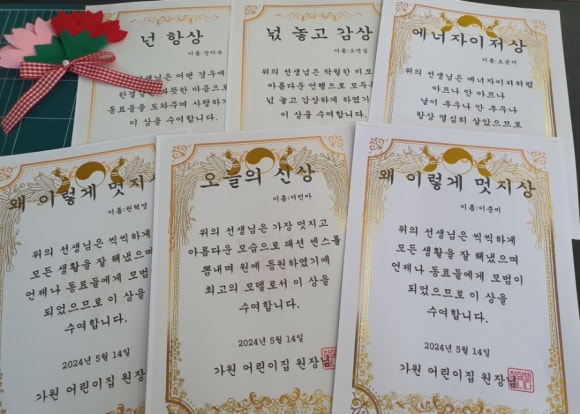 넌 항상
이름:강미수
선생님은 어떤 경우에
한결
따뜻한 마음으로
동료들을 도와주며 사랑하
이 상을 수여합니다.
넋 놓고 감상
위의 선생님은 탁월한 미모
아름다운 언행으로 모두
넋 놓고 감상하게 하였기
이 상을 수여합니다.
에너자이저상
이름:오윤미
위의 선생님은 에너자이저처럼
아프나 안 아프나
날이 추우나 안 추우나
항상 열심히 살았으므로
왜 이렇게 멋지상
이름:원혁영
위의 선생님은 씩씩하게
모든 생활을 잘 해냈으며
언제나 동료들에게 모범
되었으므로 이 상을
수여합니다.
2024년 5월 14일
가원 어린이집 원장
오늘의 신상
이름:서민아
위의 선생님은 가장 멋지고
아름다운 모습으로 패션 센스를
뽐내며 원에 등원하였기에
최고의 모델로서 이 상을
수여합니다.
2024년 5월 14일
가원 어린이집 원장님
왜 이렇게 멋지상
이름:이준미
위의 선생님은 씩씩하게
모든 생활을 잘 해냈으며
언제나 동료들에게 모범이
되었으므로 이 상을
수여합니다.
2024년 5월 14일
가원 어린이집 원장님